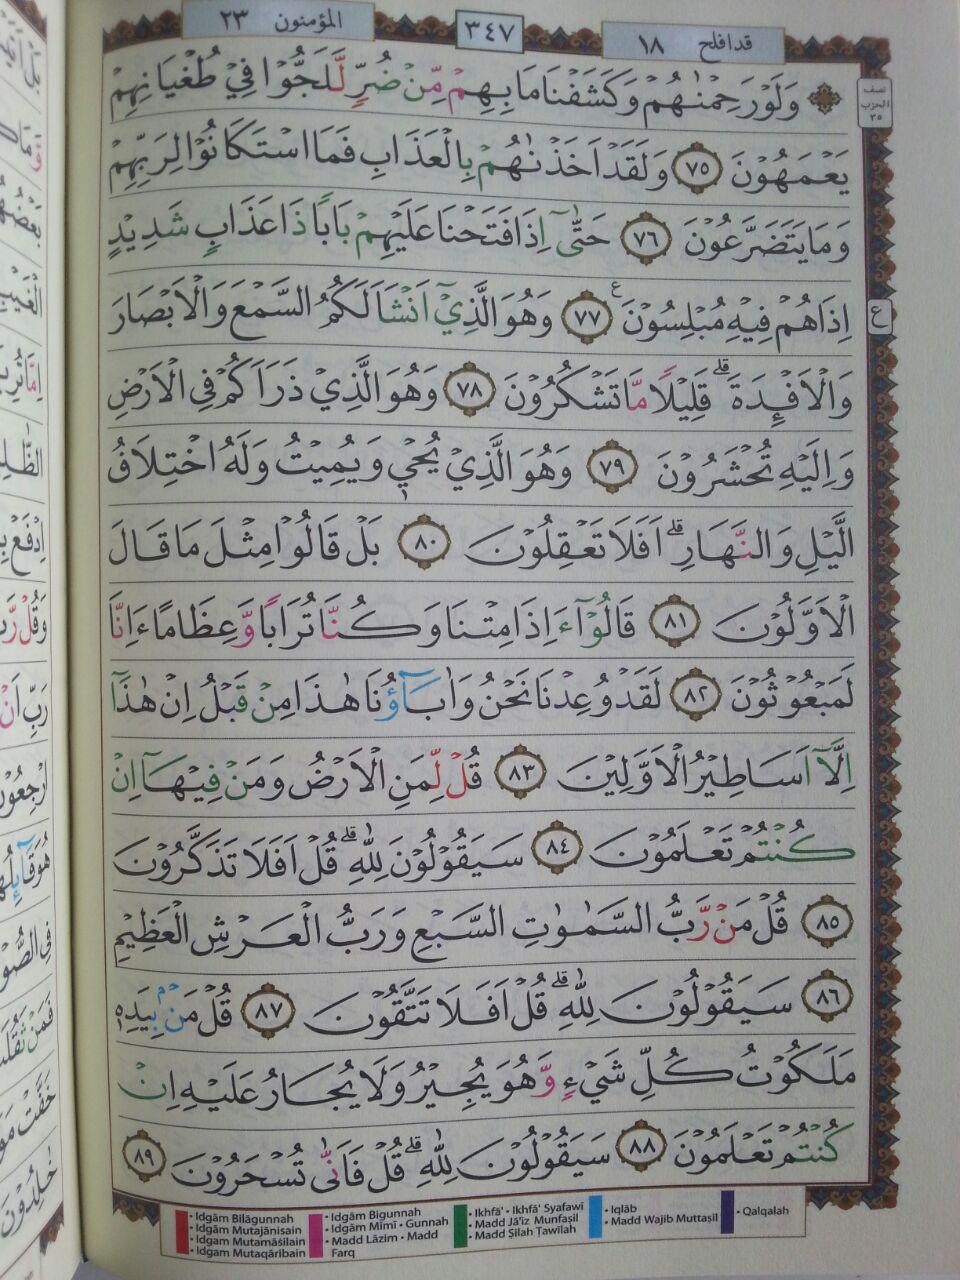 المؤمنون ٢٣
٣٤٧
قدافلح ١٨
نصف
الحزب
٣٥
وَلَوْ رَحِمْنٰهُمْ وَكَشَفْنَا مَا بِهِمْ مِّنْ ضُرٍّ لَّلَجُّوْا فِيْ طُغْيَانِهِمْ
يَعْمَهُوْنَ ٧٥ وَلَقَدْ اَخَذْنٰهُمْ بِالْعَذَابِ فَمَا اسْتَكَانُوْا لِرَبِّهِمْ
وَمَا يَتَضَرَّعُوْنَ ٧٦ حَتّٰىٓ اِذَا فَتَحْنَا عَلَيْهِمْ بَابًا ذَا عَذَابٍ شَدِيْدٍ
اِذَا هُمْ فِيْهِ مُبْلِسُوْنَ ࣖ ٧٧ وَهُوَ الَّذِيْٓ اَنْشَاَ لَكُمُ السَّمْعَ وَالْاَبْصَارَ
ع
وَالْاَفْـِٕدَةَۗ قَلِيْلًا مَّا تَشْكُرُوْنَ ٧٨ وَهُوَ الَّذِيْ ذَرَاَكُمْ فِى الْاَرْضِ
وَاِلَيْهِ تُحْشَرُوْنَ ٧٩ وَهُوَ الَّذِيْ يُحْيٖ وَيُمِيْتُ وَلَهُ اخْتِلَافُ
الَّيْلِ وَالنَّهَارِۗ اَفَلَا تَعْقِلُوْنَ ٨٠ بَلْ قَالُوْا مِثْلَ مَا قَالَ
الْاَوَّلُوْنَ ٨١ قَالُوْٓا ءَاِذَا مِتْنَا وَكُنَّا تُرَابًا وَّعِظَامًا ءَاِنَّا
لَمَبْعُوْثُوْنَ ٨٢ لَقَدْ وُعِدْنَا نَحْنُ وَاٰبَاۤؤُنَا هٰذَا مِنْ قَبْلُ اِنْ هٰذَآ
اِلَّآ اَسَاطِيْرُ الْاَوَّلِيْنَ ٨٣ قُلْ لِّمَنِ الْاَرْضُ وَمَنْ فِيْهَآ اِنْ
كُنْتُمْ تَعْلَمُوْنَ ٨٤ سَيَقُوْلُوْنَ لِلّٰهِۗ قُلْ اَفَلَا تَذَكَّرُوْنَ
٨٥ قُلْ مَنْ رَّبُّ السَّمٰوٰتِ السَّبْعِ وَرَبُّ الْعَرْشِ الْعَظِيْمِ
٨٦ سَيَقُوْلُوْنَ لِلّٰهِۗ قُلْ اَفَلَا تَتَّقُوْنَ ٨٧ قُلْ مَنْۢ بِيَدِهٖ
مَلَكُوْتُ كُلِّ شَيْءٍ وَّهُوَ يُجِيْرُ وَلَا يُجَارُ عَلَيْهِ اِنْ
كُنْتُمْ تَعْلَمُوْنَ ٨٨ سَيَقُوْلُوْنَ لِلّٰهِۗ قُلْ فَاَنّٰى تُسْحَرُوْنَ ٨٩
• Idgām Bilāgunnah
• Idgām Mutajānisain
• Idgam Mutamāsilain
• Idgam Mutaqāribain
• Idgām Bigunnah
• Idgām Mīmī • Gunnah
• Madd Lāzim • Madd
Farq
• Ikhfā' • Ikhfā' Syafawī
• Madd Jā'iz Munfaṣil
• Madd Ṣilah Ṭawīlah
• Iqlāb
• Madd Wajib Muttaṣil
• Qalqalah